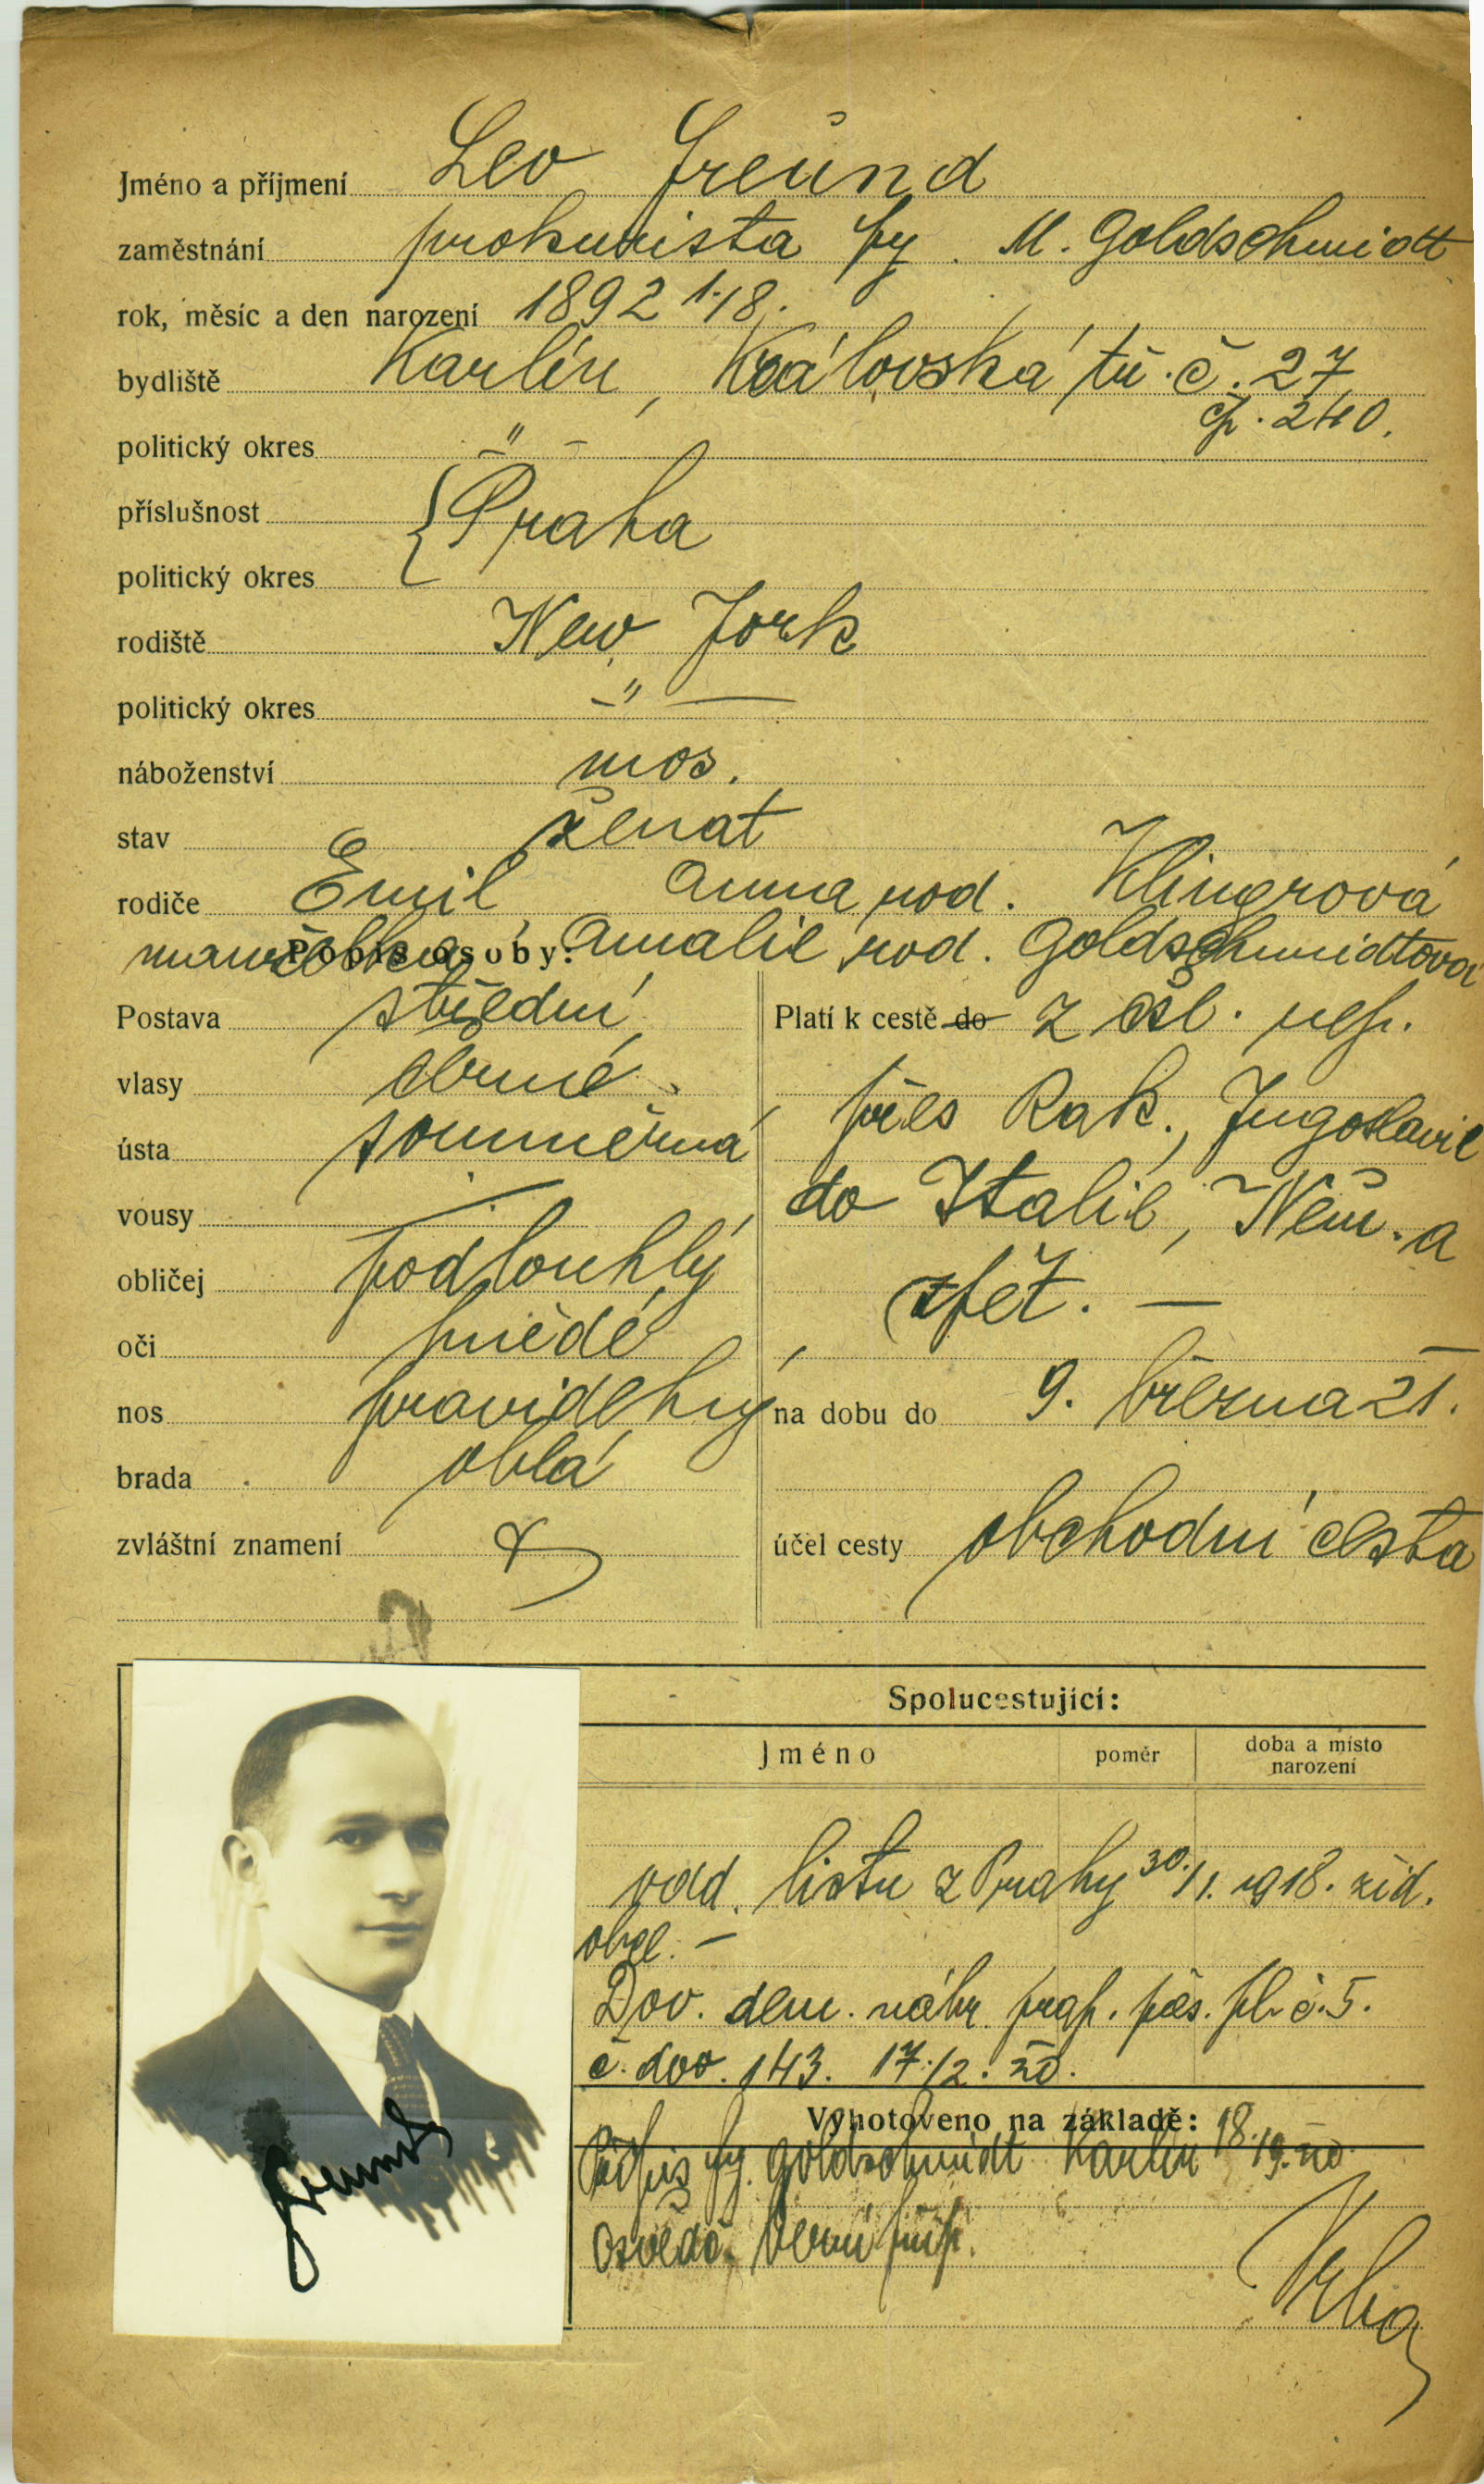 Jméno a příjmení Leo Freund
zaměstnání prokurista fy. M. Goldschmidt
rok, měsíc a den narození 1892 1/8.
bydliště Karlín, Královská tř. č. 27
čp. 240.
politický okres — " —
příslušnost { Praha
politický okres
rodiště New Jork
politický okres — " —
náboženství mos.
stav ženat
rodiče Emil, Anna rod. Klingrová
manželka Amalie rod. Goldschmidtová
Popis osoby:
Postava střední
vlasy černé
ústa souměrná
vousy —
obličej podlouhlý
oči hnědé
nos pravidelný
brada oblá
zvláštní znamení
Platí k cestě do z čsl. rep.
přes Rak., Jugoslavii
do Italie, Něm. a
zpět. —
na dobu do 9. března 21.
účel cesty obchodní cesta
Spolucestující:
Jméno poměr doba a místo narození
odd. listu z Prahy 30./1. 1918. žid.
obce. —
Dov. dem. náhr. prap. pěš. pl. č. 5.
č. dov. 143. 17./2. 20.
Vyhotoveno na základě:
Přípis fy. Goldschmidt Karlín 18./
Osvědč. berní
Freund